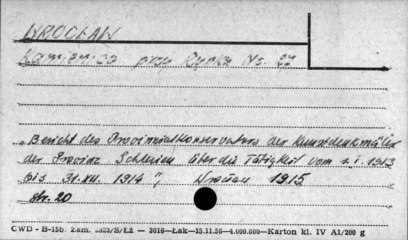 WROCŁAW
Kamienica przy Rynku Nr. 27
„Bericht des Provinzialkonservators der Kunstdenkmäler
der Provinz Schlesien über die Tätigkeit vom 1.I.1913
bis 31.XII. 1914", Wrocław 1915
str. 20
CWD - B-15b. zam. /S/ŁŻ — 3016—Łak—15.11.56—4.000.000—Karton kl. IV A1/200 g